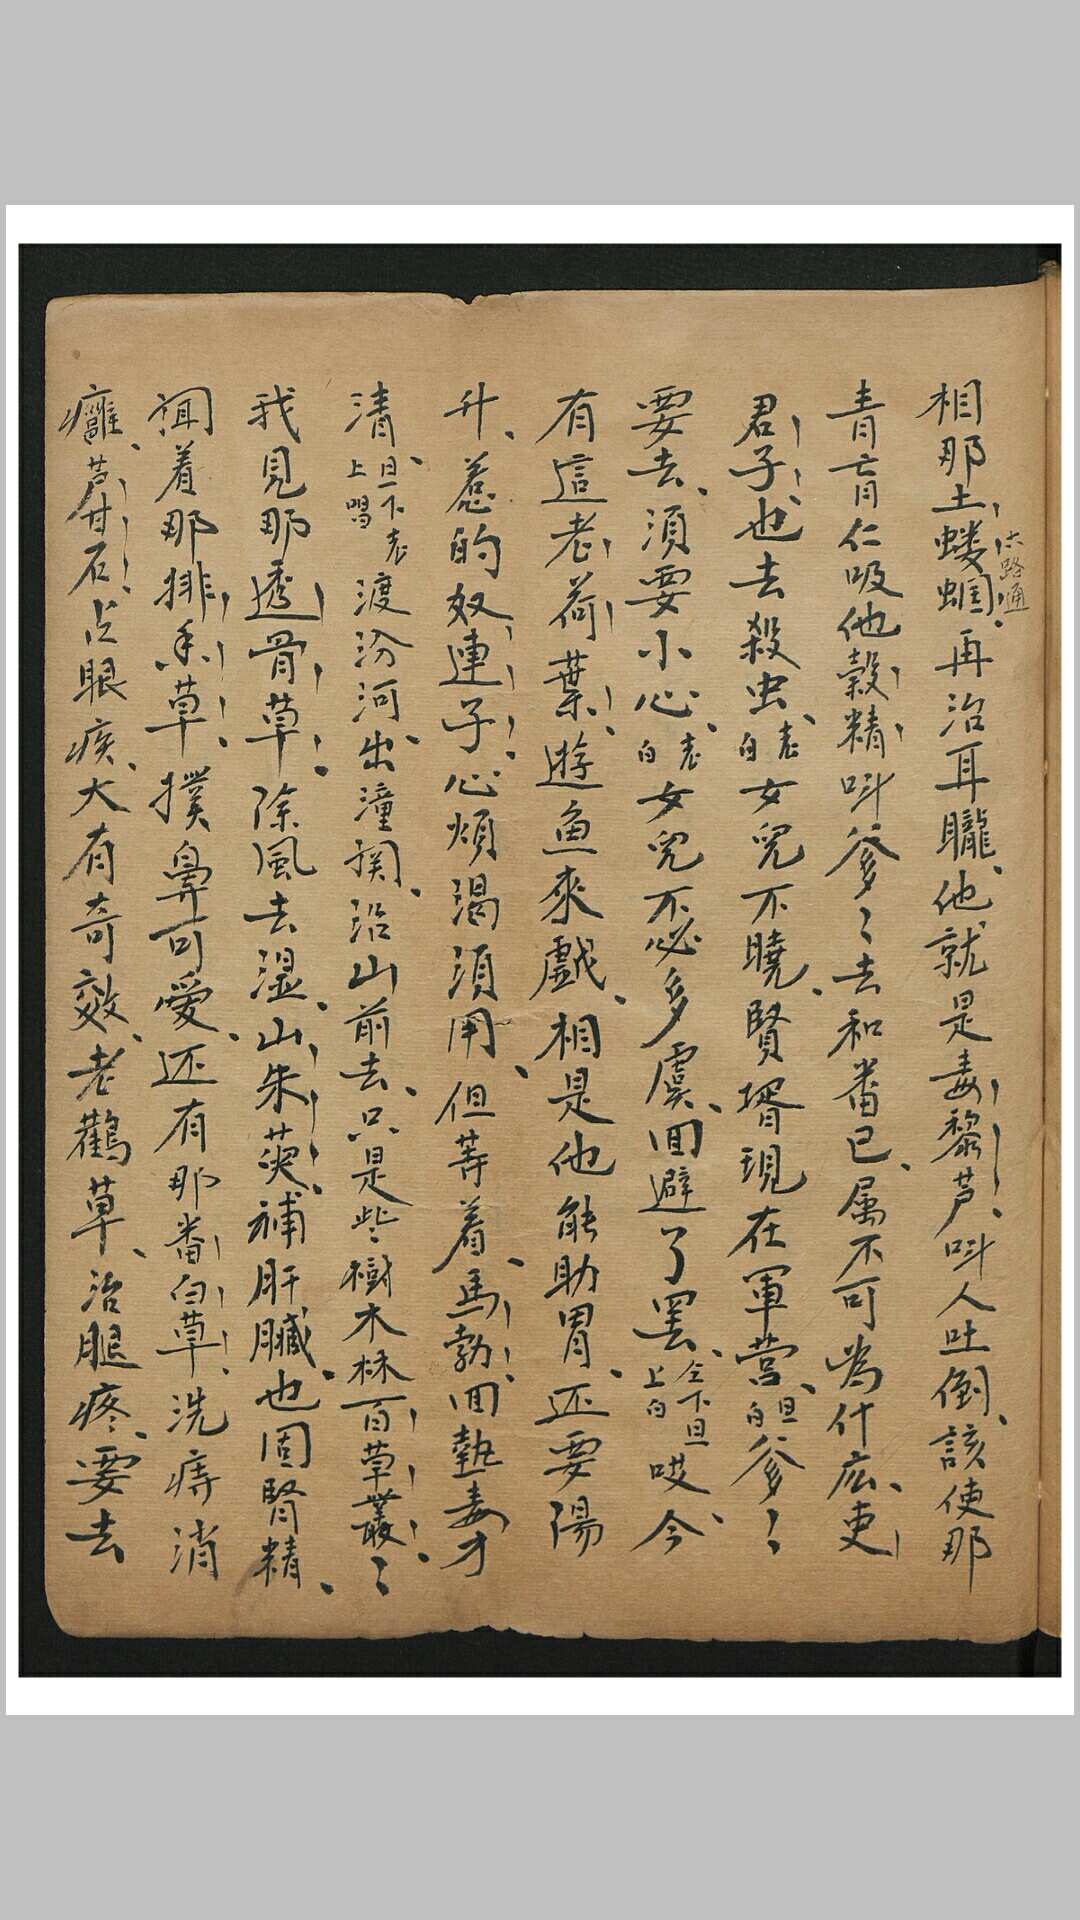 相那土蝼蛔、再治耳朧、他就是毒黎芦、呌人吐倒、該使那
六路通
青肓仁吸他穀精呌爹〻去和番已、属不可為什庅、吏
君子也去殺虫、老白女兒不曉、賢壻現在軍营、旦白爹〻
要去、須要小心、老白女兒不必多虞、囬避了罢、仝下旦上白哎、今
有這老荷葉、遊魚來戯、相是他能助胃、还要陽
升、惹的奴連子、心煩渴須用、但等着、馬勃、囬執毒才
清、旦下老上唱渡汾河、出潼関、沿山前去、只是些樹木林百草叢〻、
我見那透骨草、除風去湿、山朱萸、補肝臟、也固腎精、
聞着那排香草、撲鼻可愛、还有那番白草、洗痔消
癰、芦甘石、点眼疾、大有奇效、老鸛草、治腿疼、要去